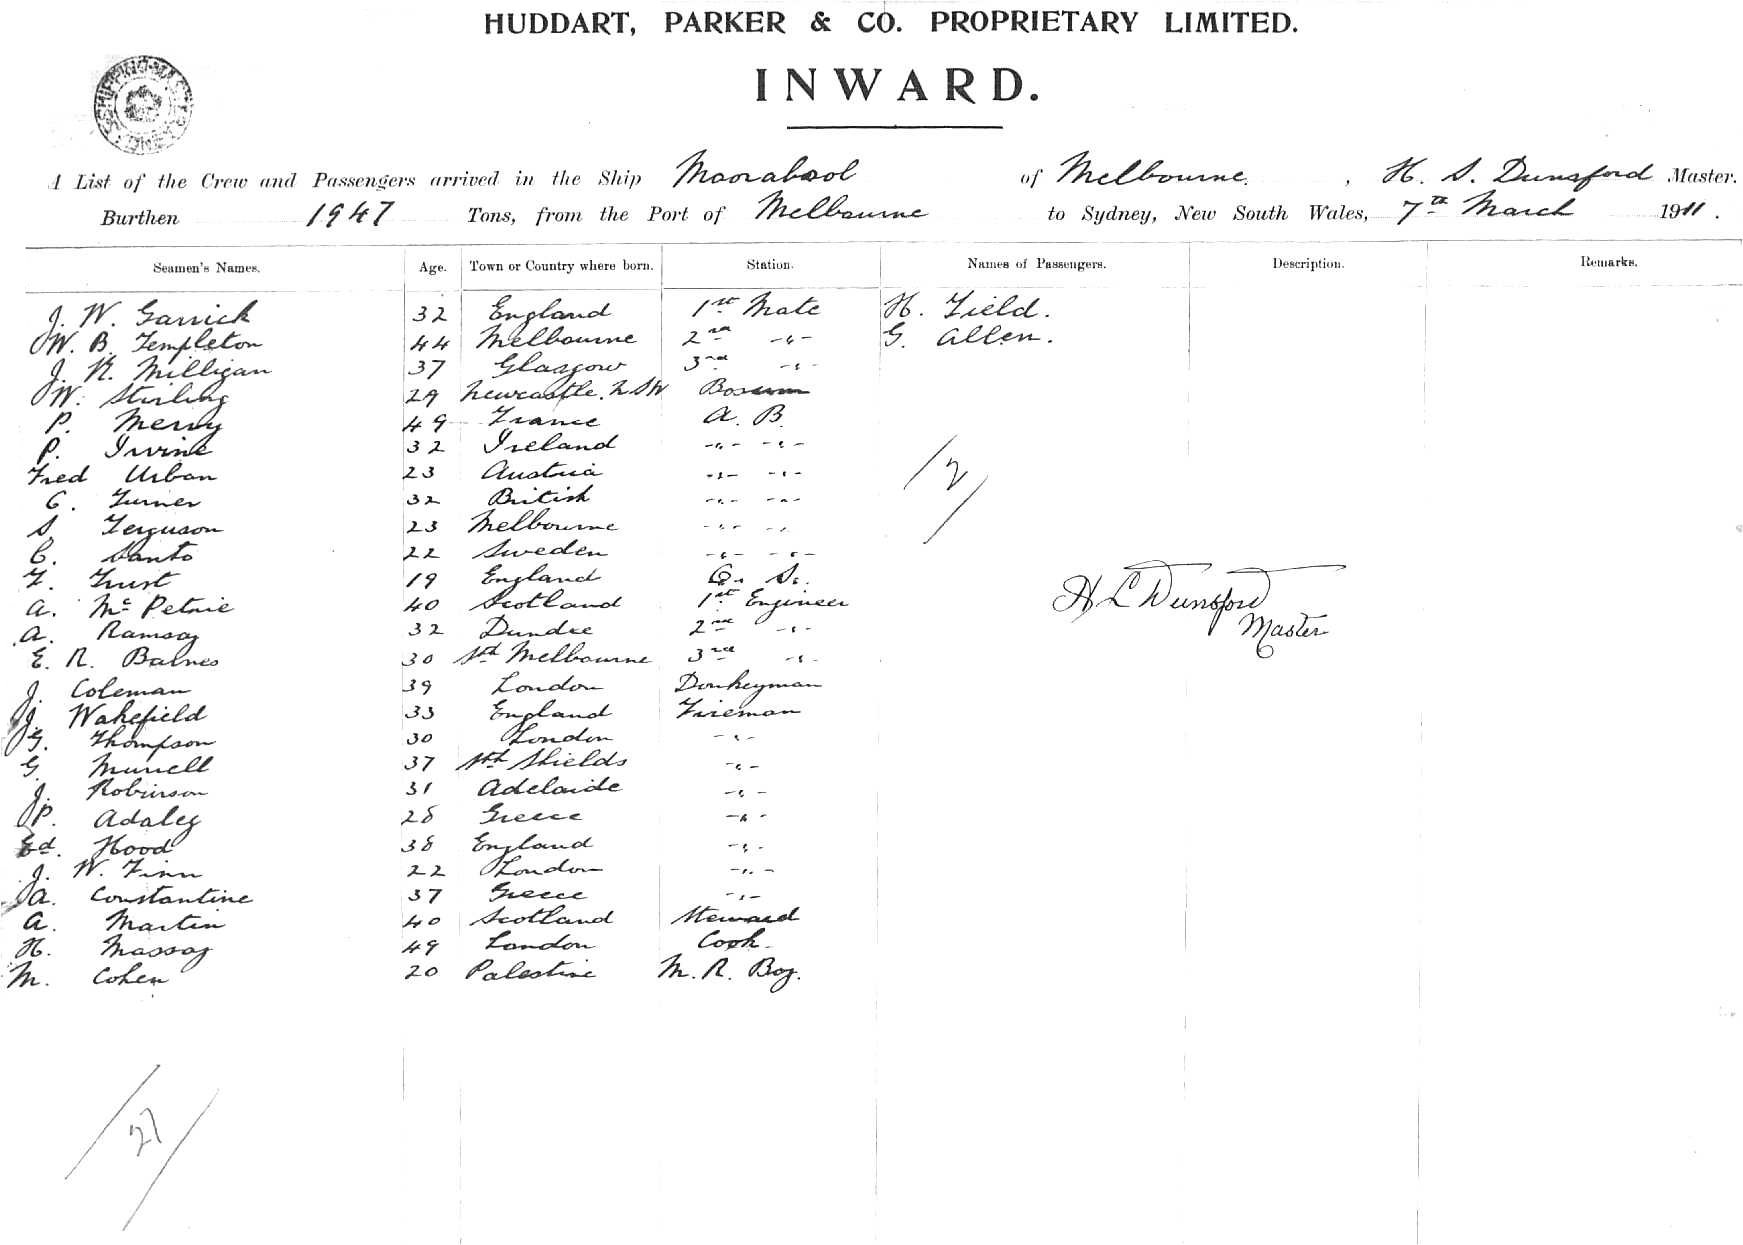 HUDDART, PARKER & CO. PROPRIETARY LIMITED.
INWARD.
A List of the Crew and Passengers arrived in the Ship Moorabool of Melbourne. , H. S. Dunsford Master.
Burthen 1947 Tons, from the Port of Melbourne to Sydney, New South Wales, 7th March 1911.
Seamen's Names. Age. Town or Country where born. Station. Names of Passengers. Description. Remarks.
J. W. Garrick 32 England 1st Mate H. Field.
W. B. Templeton 44 Melbourne 2nd -"- G. Allen.
J. R. Milligan 37 Glasgow 3rd -"-
W. Stirling 29 Newcastle. NSW Bosun
P. Merry 49 France A. B.
P. Irvine 32 Ireland -"- -"-
Fred Urban 23 Austria -"- -"-
C. Turner 32 British -"- -"-
S. Ferguson 23 Melbourne -"- -"-
C. Santo 22 Sweden -"- -"-
F. Trust 19 England O. S.
A. McPetrie 40 Scotland 1st Engineer
A. Ramsay 32 Dundee 2nd -"-
E. R. Barnes 30 Sth Melbourne 3rd -"-
J. Coleman 39 London Donkeyman
J. Wakefield 33 England Fireman
G. Thompson 30 London -"-
G. Murrell 37 Sth Shields -"-
J. Robinson 31 Adelaide -"-
P. Adaley 28 Greece -"-
Ed. Hood 38 England -"-
J. W. Finn 22 London -"-
A. Constantine 37 Greece -"-
A. Martin 40 Scotland Steward
H. Massay 49 London Cook.
M. Cohen 20 Palestine M. R. Boy.
/2/
H L Dunsford
Master
/27/